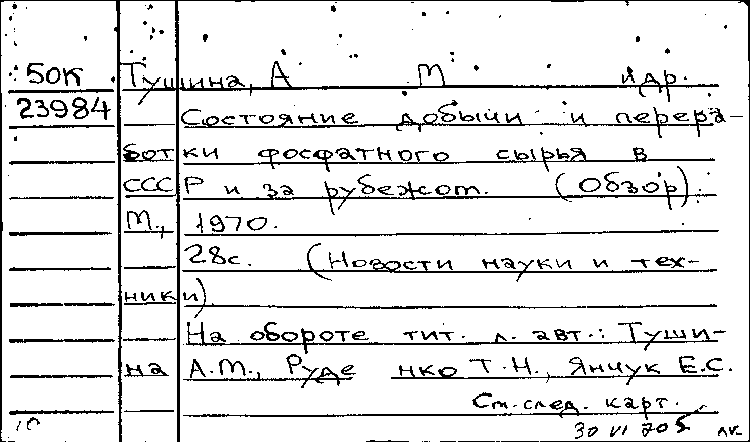 50К Тушина, А М и др.
23984 Состояние добычи и перера-
ботки фосфатного сырья в
СССР и за рубежом. (Обзор).
М., 1970.
28с. (Новости науки и тех-
ники).
На обороте тит. л. авт.: Туши-
на А.М., Руденко Т.Н., Янчук Е.С.
См. след. карт.
30 VI 705 лк
10